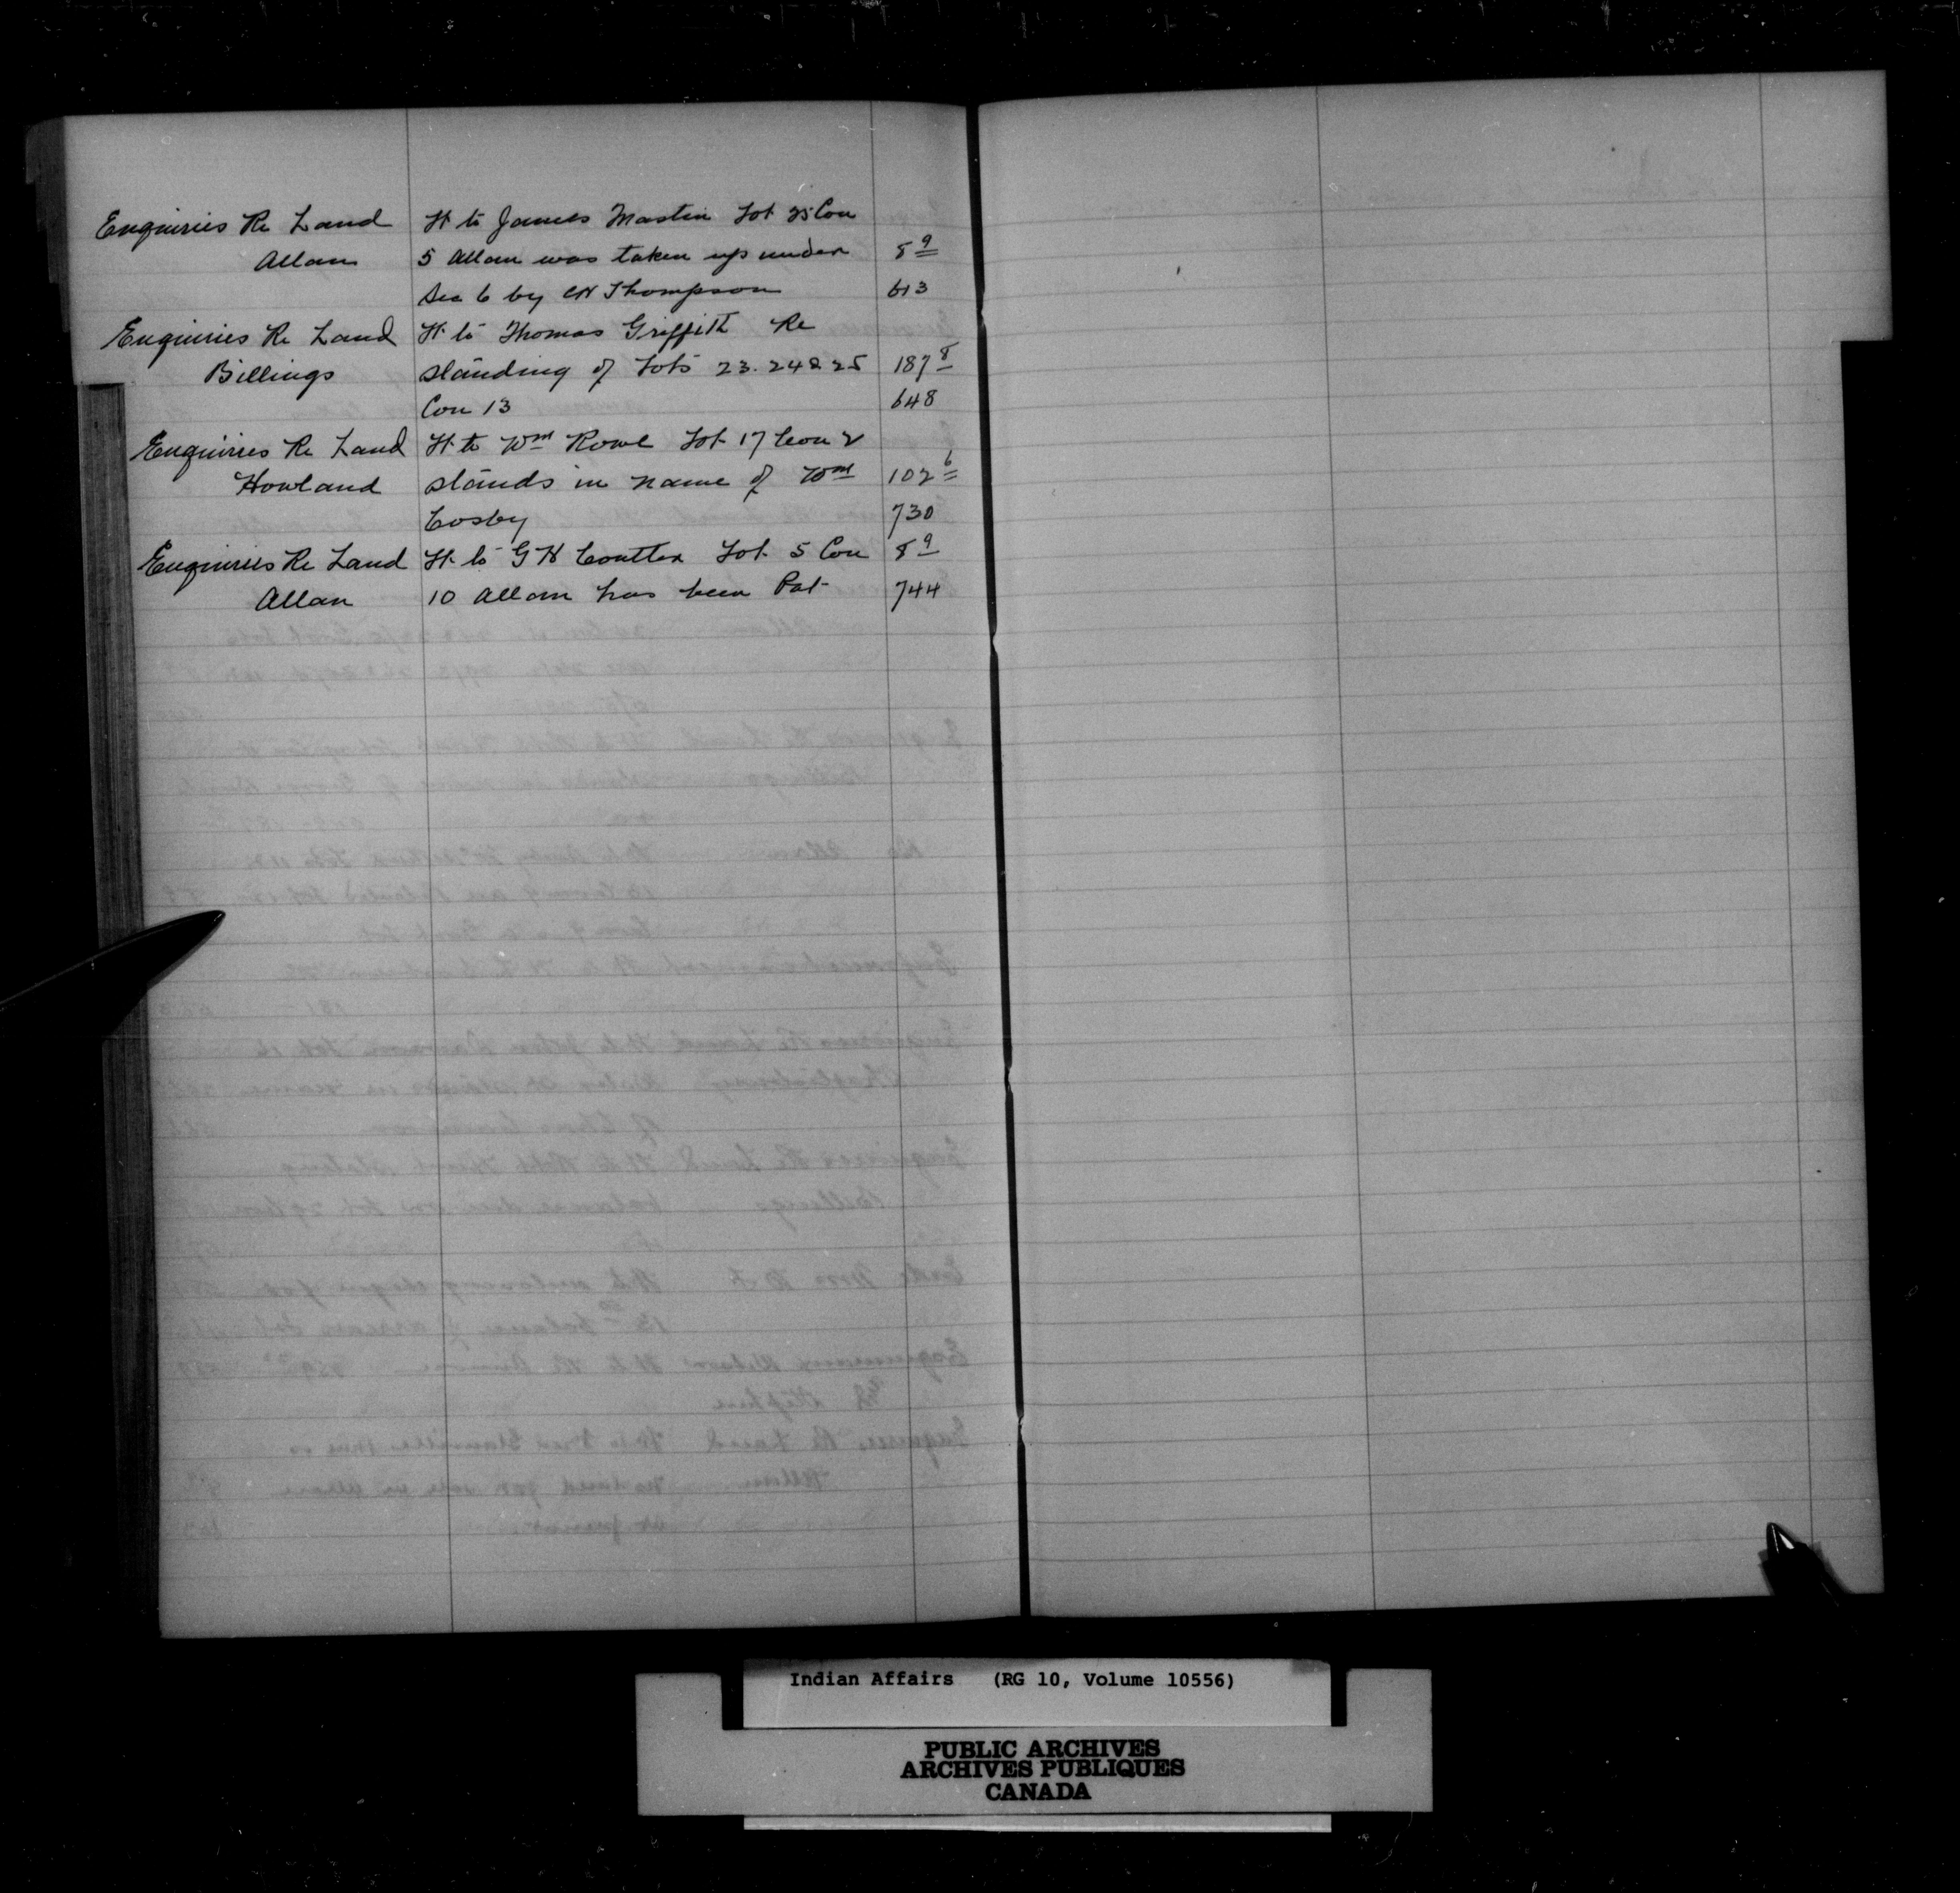 Enquiries Re Land It to James Mastin Lot 25 Con
Allan 5 Allan was taken up under 8 9
Sec 6 by CH Thompson 613
Enquiries Re Land It to Thomas Griffith Re
Billings standing of Lots 23. 24 & 25 187 8
Con 13 648
Enquiries Re Land It to Wm Rowe Lot 17 Con 2
Howland stands in name of Wm 102 6
Cosby 730
Enquiries Re Land It to G H Coutter Lot 5 Con 8 9
Allan 10 Allan has been Pat 744
Indian Affairs (RG 10, Volume 10556)
PUBLIC ARCHIVES
ARCHIVES PUBLIQUES
CANADA